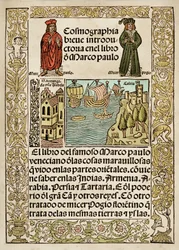 Cosmographia
breue introdu
ctoria en el libro
d Marco paulo
El libro del famoso Marco paulo
veneciano d las cosas marauillosas
q vido en las partes oriētales. cōuie
ne saber en las Indias. Armenia. A
rabia. Persia y Tartaria. E del pode
rio del grā Cā y otros reyes. Cō otro
tratado de micer Pogio florētino q
trata de las mesmas tierras y yslas.